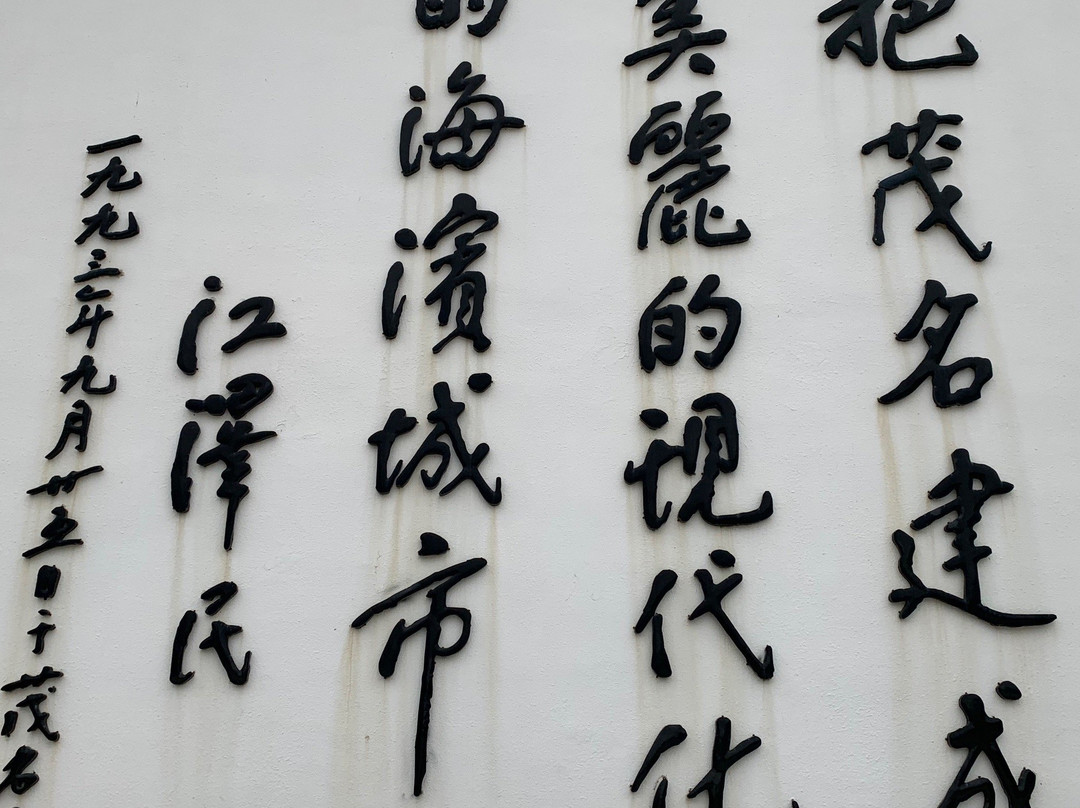 把茂名建成
美麗的現代化
的海濱城市
江澤民
一九九三年九月廿五日于茂名